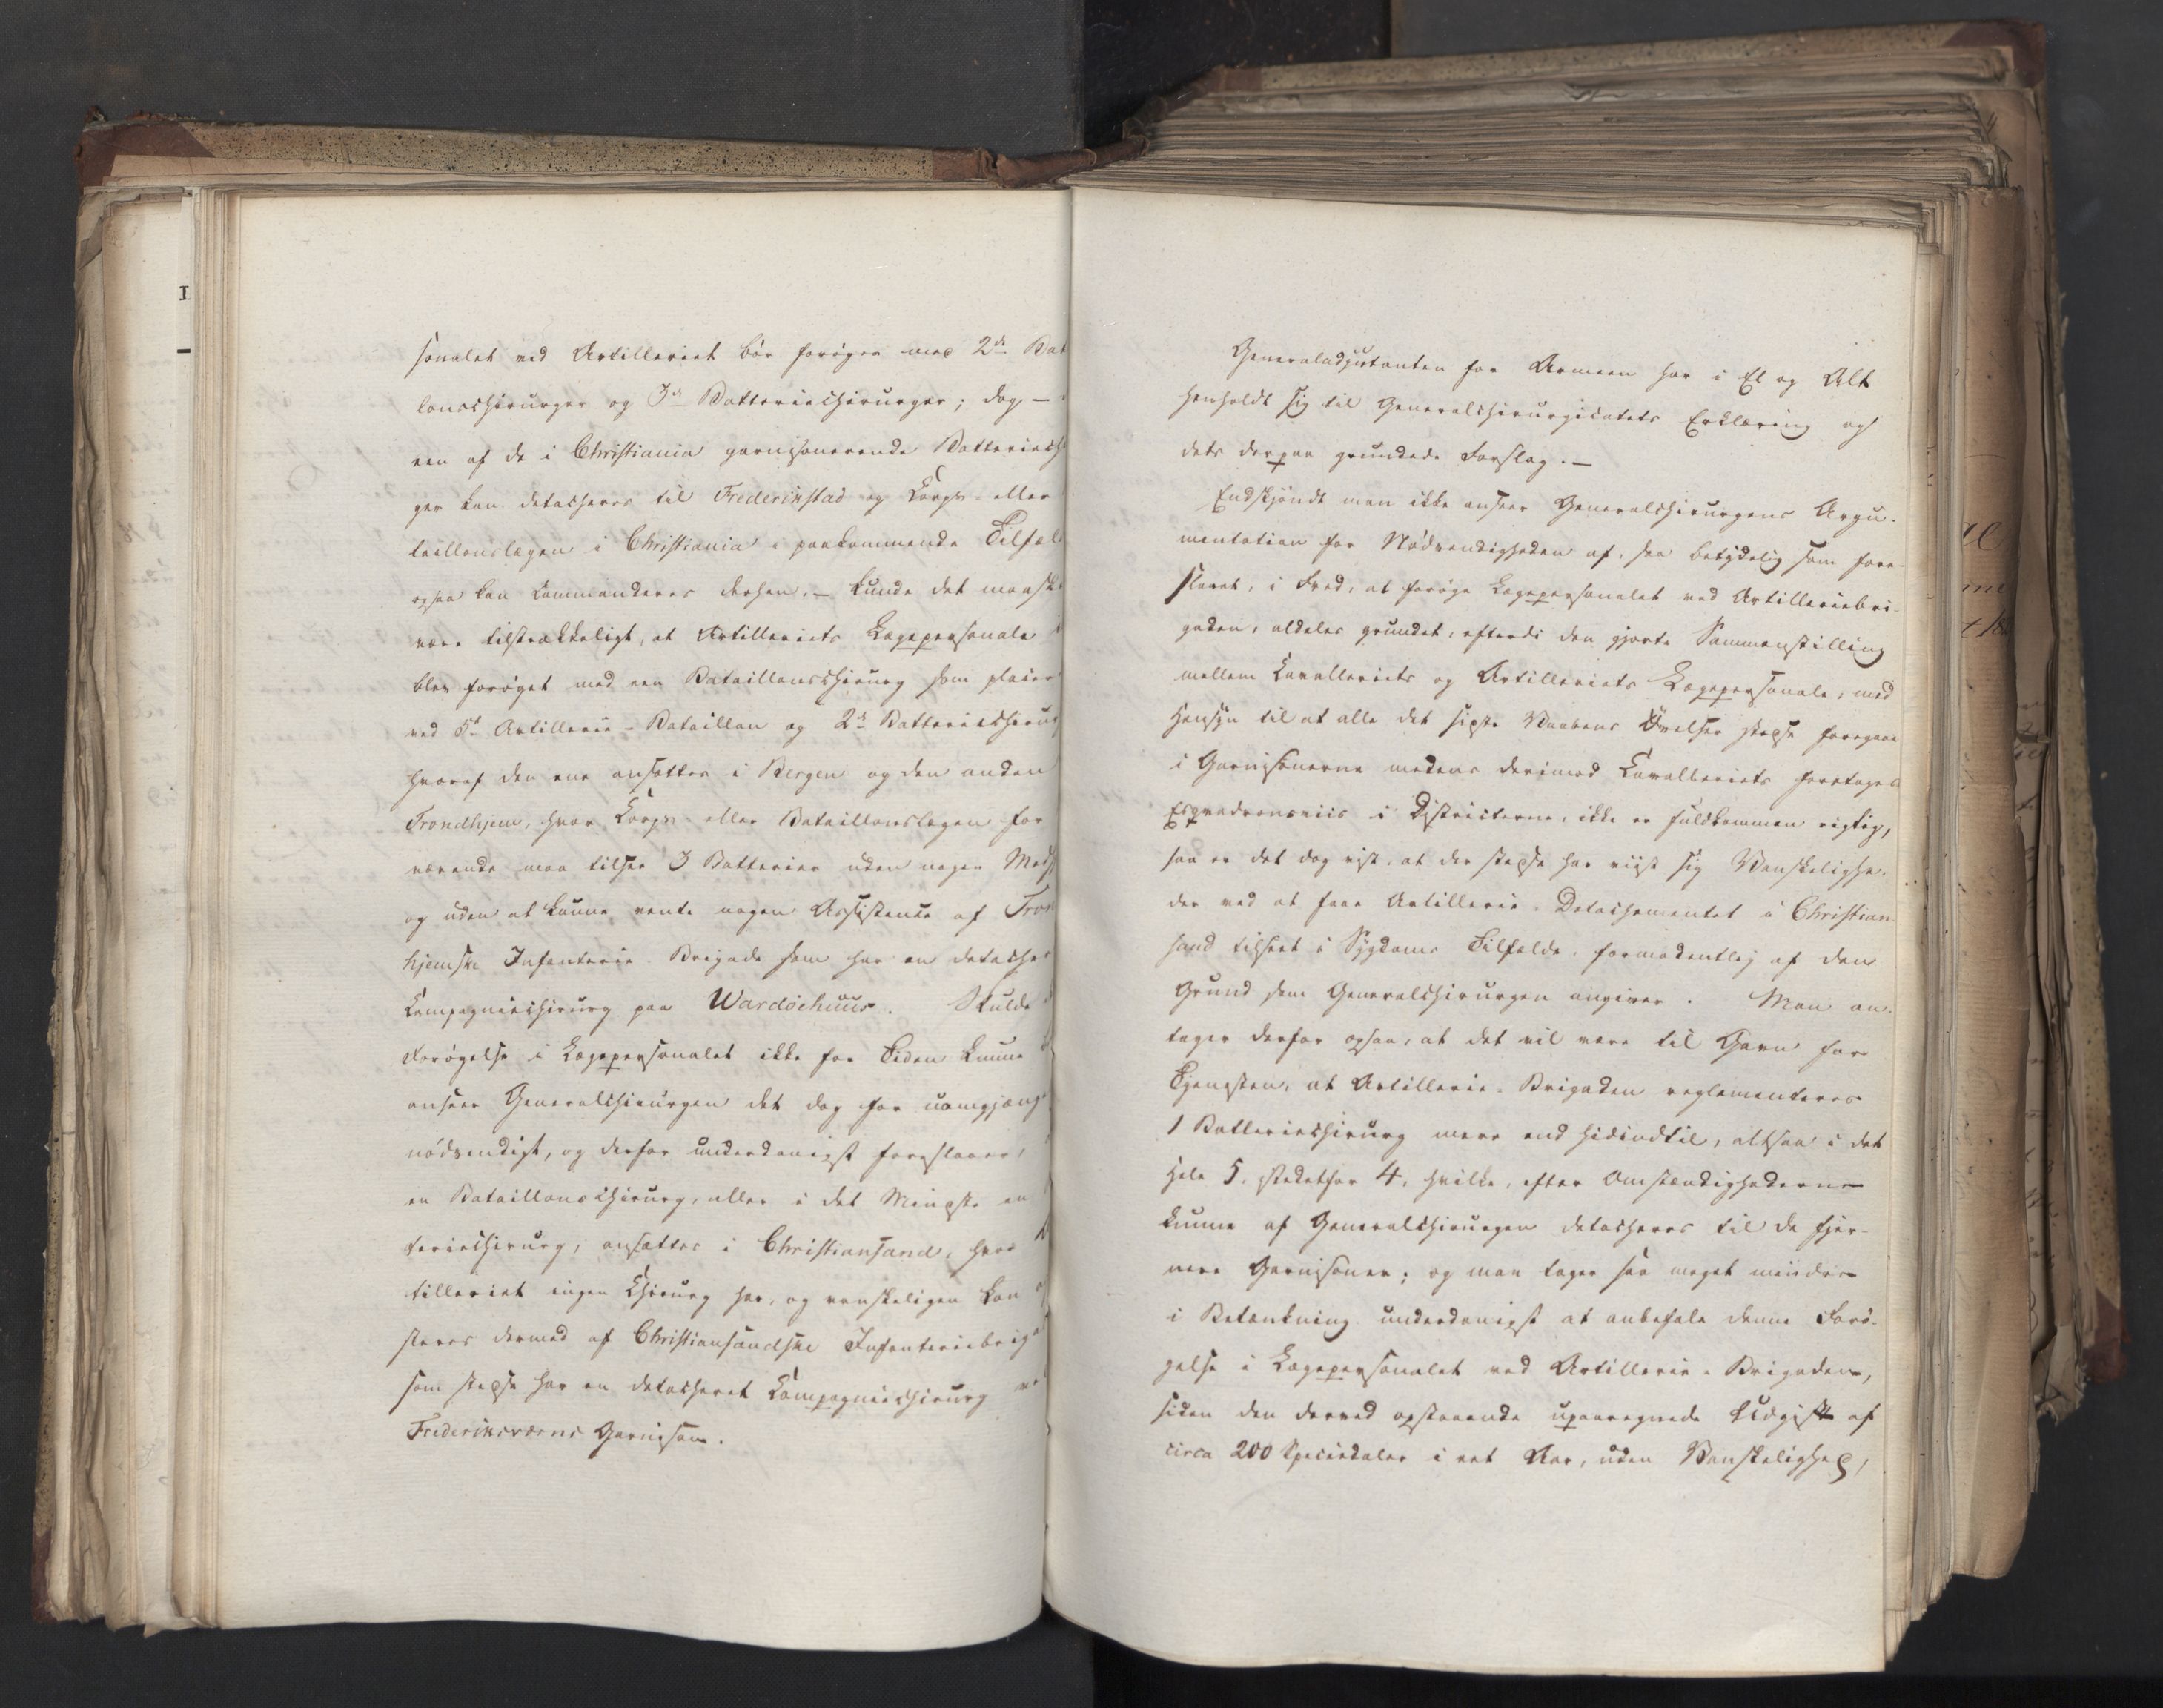 sonalet ved Artilleriet bör forøges med 2de Bat
lonschirurger og 3de Batteriechirurger; dog —
een af de i Christiania garnisonerende Batteriech
ger kan detacheres til Frederikstad og Corps- eller
taillonslægen i Christiania i paakommende Tilfæl
ogsaa kan commanderes derhen, — kunde det maask
være tilstrækkeligt, at Artilleriets Lægepersonale
blev forøget med een Bataillonschirurg som placer
ved 5te Artillerie-Bataillon og 2de Batteriechirur
hvoraf den ene ansættes i Bergen og den anden
Trondhjem, hvor Corps- eller Bataillonslægen for
nærende maa tilsee 3 Batterier uden nogen Med
og uden at kunne vente nogen Assistence af Tron
hjemske Infanterie-Brigade som har en detacher
Compagniechirurg paa Wardöehuus. Skulde
Forøgelse i Lægepersonalet ikke for Tiden kunne
ansees Generalchirurgen det dog for uomgjæng
nödvendigt, og derfor underdanigst foreslaaer,
en Bataillonschirurg, eller i det Mindste en
teriechirurg, ansættes i Christiansand, hvor
tilleriet ingen Chirurg har, og vanskeligen kan
steres dermed af Christiansandske Infanteriebriga
som stedse har en detacheret Compagniechirurg
Frederiksværns Garnison.
Generaladjutanten for Armeen har i Et og Alt
henholdt sig til Generalchirurgicatets Erklæring og
dets derpaa grundede Forslag. —
Endskjöndt man ikke anseer Generalchirurgens Argu-
mentation for Nödvendigheden af, saa betydelig som fore-
slaaet, i Fred, at forøge Lægepersonalet ved Artilleriebri-
gaden, aldeles grundet, efterdi den gjorte Sammenstilling
mellem Cavalleriets og Artilleriets Lægepersonale, med
Hensyn til at alle det sidste Vaabens Övelser stedse foregaae
i Garnisonerne medens derimod Cavalleriets foretages
Esqvadronsviis i Districterne, ikke er fuldkommen rigtig,
saa er det dog vist, at der stedse har viist sig Vanskelighe-
der ved at faae Artillerie-Detachementet i Christian
sand tilseet i Sygdoms Tilfælde, formodentlig af den
Grund som Generalchirurgen angiver. Man an-
tager derfor ogsaa, at det vil være til Gavn for
Tjenesten, at Artillerie-Brigaden reglementeres
1 Batteriechirurg mere end hidindtil, altsaa i det
Hele 5, stedetfor 4, hvilke, efter Omstændighederne
kunne af Generalchirurgen detacheres til de fjer-
nere Garnisoner; og man tager saa meget mindre
i Betænkning underdanigst at anbefale denne Forö-
gelse i Lægepersonalet ved Artillerie-Brigaden,
siden den derved opstaaende upaaregnede Udgift af
circa 200 Speciedaler i eet Aar, uden Vanskelighed,